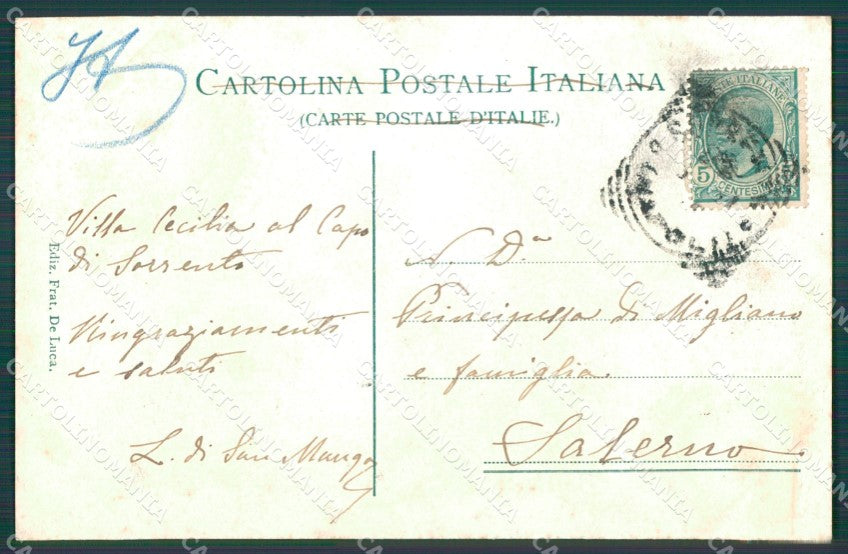 CARTOLINA POSTALE ITALIANA
(CARTE POSTALE D'ITALIE.)
5
CENTESIMI
Villa Cecilia al Capo
di Sorrento
Ringraziamenti
e saluti
L. di San Mango
Ediz. Frat. De Luca.
N. D.ª
Principessa di Migliano
e famiglia
Salerno
CARTOLINOMANIA